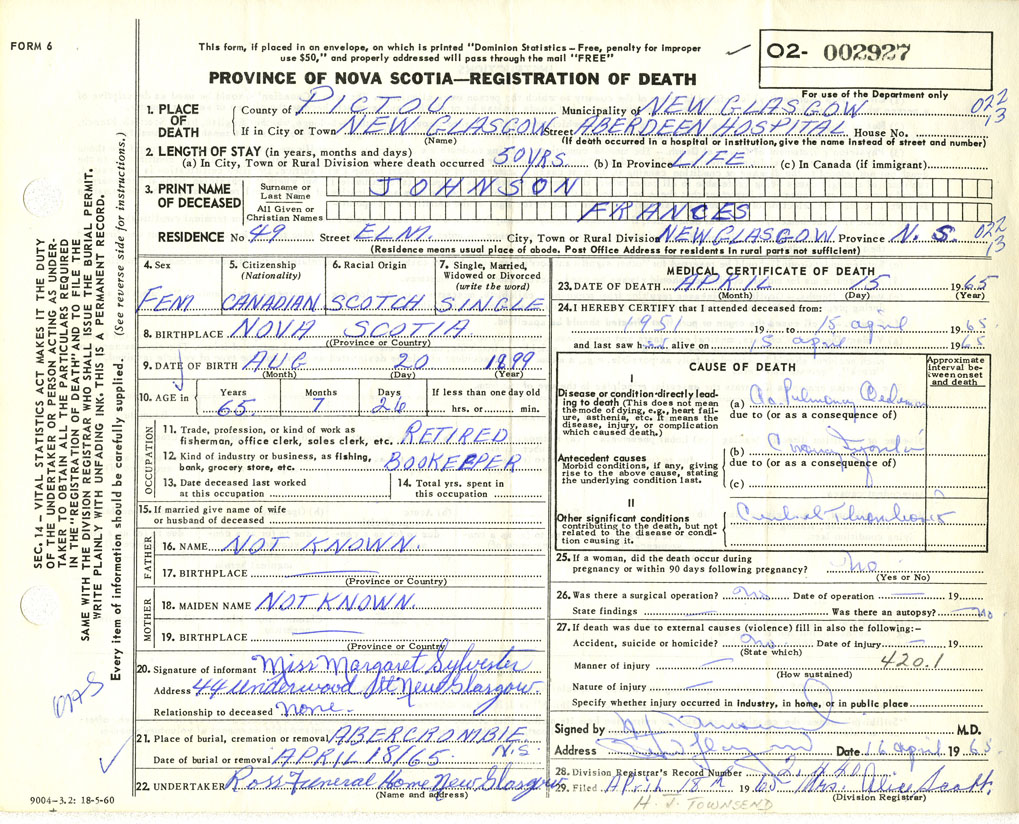 FORM 6
This form, if placed in an envelope, on which is printed "Dominion Statistics – Free, penalty for improper
use $50," and properly addressed will pass through the mail "FREE"
02- 002927
PROVINCE OF NOVA SCOTIA—REGISTRATION OF DEATH
For use of the Department only
1. PLACE OF DEATH
County of PICTOU Municipality of NEW GLASGOW 022
If in City or Town NEW GLASGOW Street ABERDEEN HOSPITAL House No. 13
(Name) (If death occurred in a hospital or institution, give the name instead of street and number)
2. LENGTH OF STAY (in years, months and days)
(a) In City, Town or Rural Division where death occurred 50 YRS (b) In Province LIFE (c) In Canada (if immigrant)
3. PRINT NAME OF DECEASED
Surname or Last Name JOHNSON
All Given or Christian Names FRANCES
RESIDENCE No. 49 Street ELM. City, Town or Rural Division NEW GLASGOW Province N. S. 022 13
(Residence means usual place of abode. Post Office Address for residents in rural parts not sufficient)
4. Sex
FEM
5. Citizenship (Nationality)
CANADIAN
6. Racial Origin
SCOTCH
7. Single, Married, Widowed or Divorced (write the word)
SINGLE
8. BIRTHPLACE NOVA SCOTIA
(Province or Country)
9. DATE OF BIRTH AUG 20 1899
(Month) (Day) (Year)
10. AGE in Years 65. Months 7 Days 26 If less than one day old hrs. or min.
OCCUPATION
11. Trade, profession, or kind of work as fisherman, office clerk, sales clerk, etc. RETIRED
12. Kind of industry or business, as fishing, bank, grocery store, etc. BOOKEEPER
13. Date deceased last worked at this occupation
14. Total yrs. spent in this occupation
15. If married give name of wife or husband of deceased
FATHER
16. NAME NOT KNOWN.
17. BIRTHPLACE
(Province or Country)
MOTHER
18. MAIDEN NAME NOT KNOWN.
19. BIRTHPLACE
(Province or Country)
20. Signature of informant Miss Margaret Sylvester
Address 44 Underwood St New Glasgow.
Relationship to deceased none.
21. Place of burial, cremation or removal ABERCROMBIE N.S.
Date of burial or removal APRIL 18/65
22. UNDERTAKER Ross Funeral Home New Glasgow
(Name and address)
MEDICAL CERTIFICATE OF DEATH
23. DATE OF DEATH APRIL 15 1965
(Month) (Day) (Year)
24. I HEREBY CERTIFY that I attended deceased from:
1951 19 to 15 april 1965
and last saw h alive on 15 april 1965
CAUSE OF DEATH
Approximate interval between onset and death
I
Disease or condition directly leading to death (This does not mean the mode of dying, e.g., heart failure, asthenia, etc. It means the disease, injury, or complication which caused death.)
(a) Ac. Pulmonary Oedema
due to (or as a consequence of)
Antecedent causes
Morbid conditions, if any, giving rise to the above cause, stating the underlying condition last.
(b)
due to (or as a consequence of)
(c)
II
Other significant conditions contributing to the death, but not related to the disease or condition causing it.
Cerebral Thrombosis
25. If a woman, did the death occur during pregnancy or within 90 days following pregnancy? No
(Yes or No)
26. Was there a surgical operation? No Date of operation 19
State findings Was there an autopsy? No
27. If death was due to external causes (violence) fill in also the following:–
Accident, suicide or homicide? No Date of injury 19
(State which)
Manner of injury 420.1
(How sustained)
Nature of injury
Specify whether injury occurred in industry, in home, or in public place
Signed by M.D.
Address Date 16 april 1965
28. Division Registrar's Record Number 2,440
29. Filed April 18th 1965 Mrs. Alice Scott.
(Division Registrar)
H. J. TOWNSEND
SEC. 14 – VITAL STATISTICS ACT MAKES IT THE DUTY
OF THE UNDERTAKER OR PERSON ACTING AS UNDER-
TAKER TO OBTAIN ALL THE PARTICULARS REQUIRED
IN THE "REGISTRATION OF DEATH" AND TO FILE THE
SAME WITH THE DIVISION REGISTRAR WHO SHALL ISSUE THE BURIAL PERMIT.
WRITE PLAINLY WITH UNFADING INK. THIS IS A PERMANENT RECORD.
Every item of information should be carefully supplied. (See reverse side for instructions.)
9004–3.2: 18-5-60